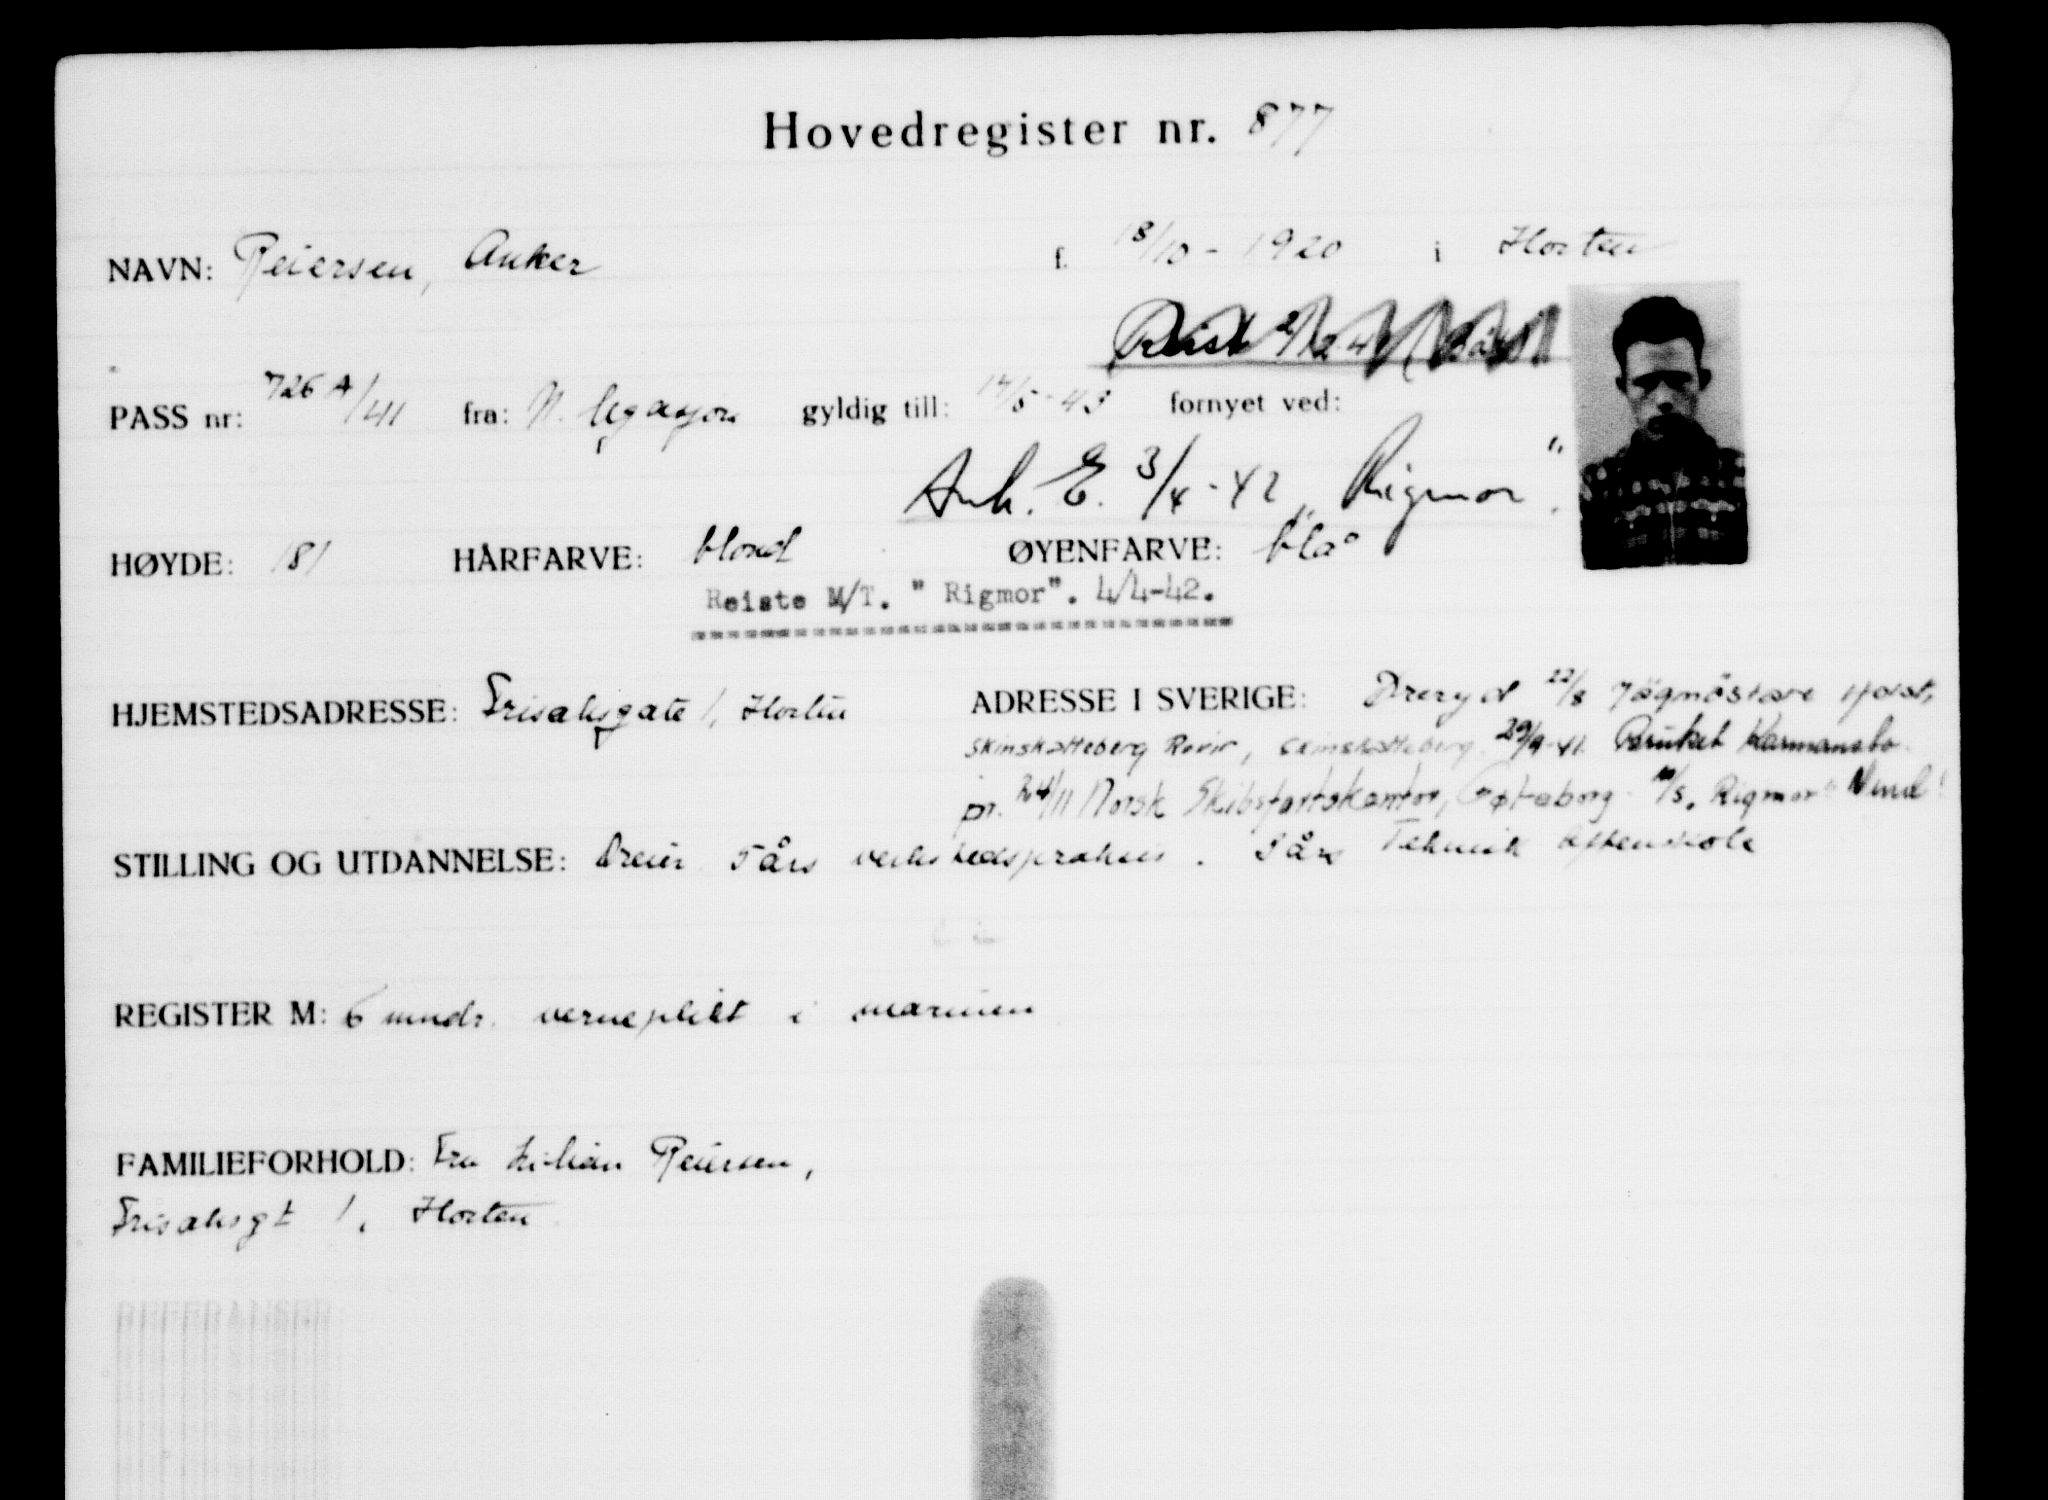 Hovedregister nr. 877
NAVN: Reiersen, Anker f. 18/10 - 1920 i Horten
PASS nr: 726 A/41 fra: N. legasjon gyldig till: 17/5 - 43 fornyet ved:
Ank. E. 3/4 - 42 „Rigmor".
HØYDE: 181 HÅRFARVE: blond ØYENFARVE: blå
Reiste M/T. " Rigmor". 4/4-42.
HJEMSTEDSADRESSE: gate 1, Horten ADRESSE I SVERIGE: 22/8 Jägmästare
Skinskatteberg Revir, Skinskatteberg. 29/9-41 Bruket Karmansbo.
pr. 24/11 Norsk Skibsfartskontor, Gøteborg. Rigmor"
STILLING OG UTDANNELSE: Dreier 5 års verkstedspraksis. 3 års Teknisk aftenskole
REGISTER M: 6 mndr. verneplikt i marinen
FAMILIEFORHOLD: Fru Lilian Reiersen,
1, Horten
REFERANSER